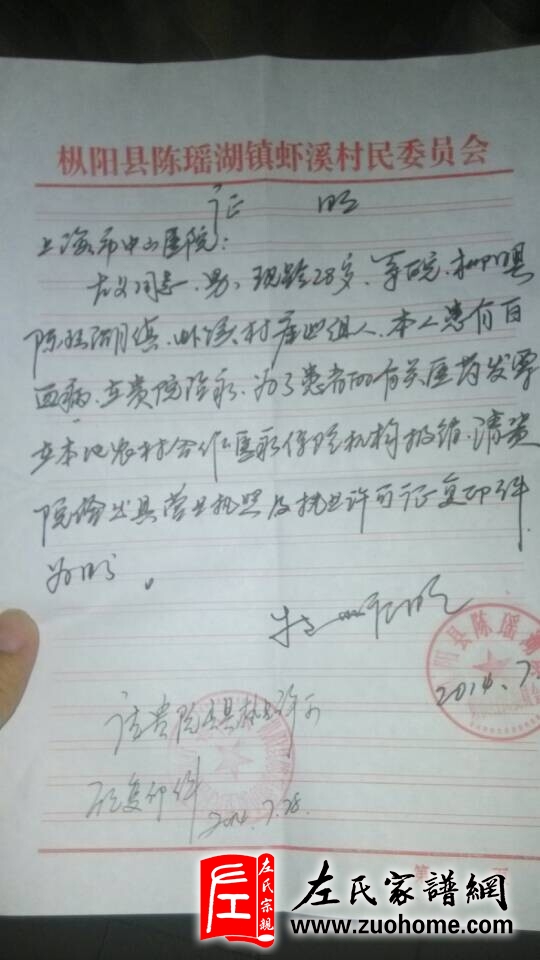 枞阳县陈瑶湖镇虾溪村民委员会
证 明
上海市中山医院:
同志、男、现龄28岁、系皖、枞阳县
陈瑶湖镇、虾溪村庄组人、本人患有白
血病、在贵院治疗、为了患者的有关医药发票
在本地农村合作医疗保险机构报销、请贵
院给出具营业执照及执业许可证复印件
为盼。
特此证明
枞阳县陈瑶湖
2014.7.
请贵院出具执业许可
证复印件
2014.7.28.
第 页
左氏宗親
左氏家譜網
www.zuohome.com